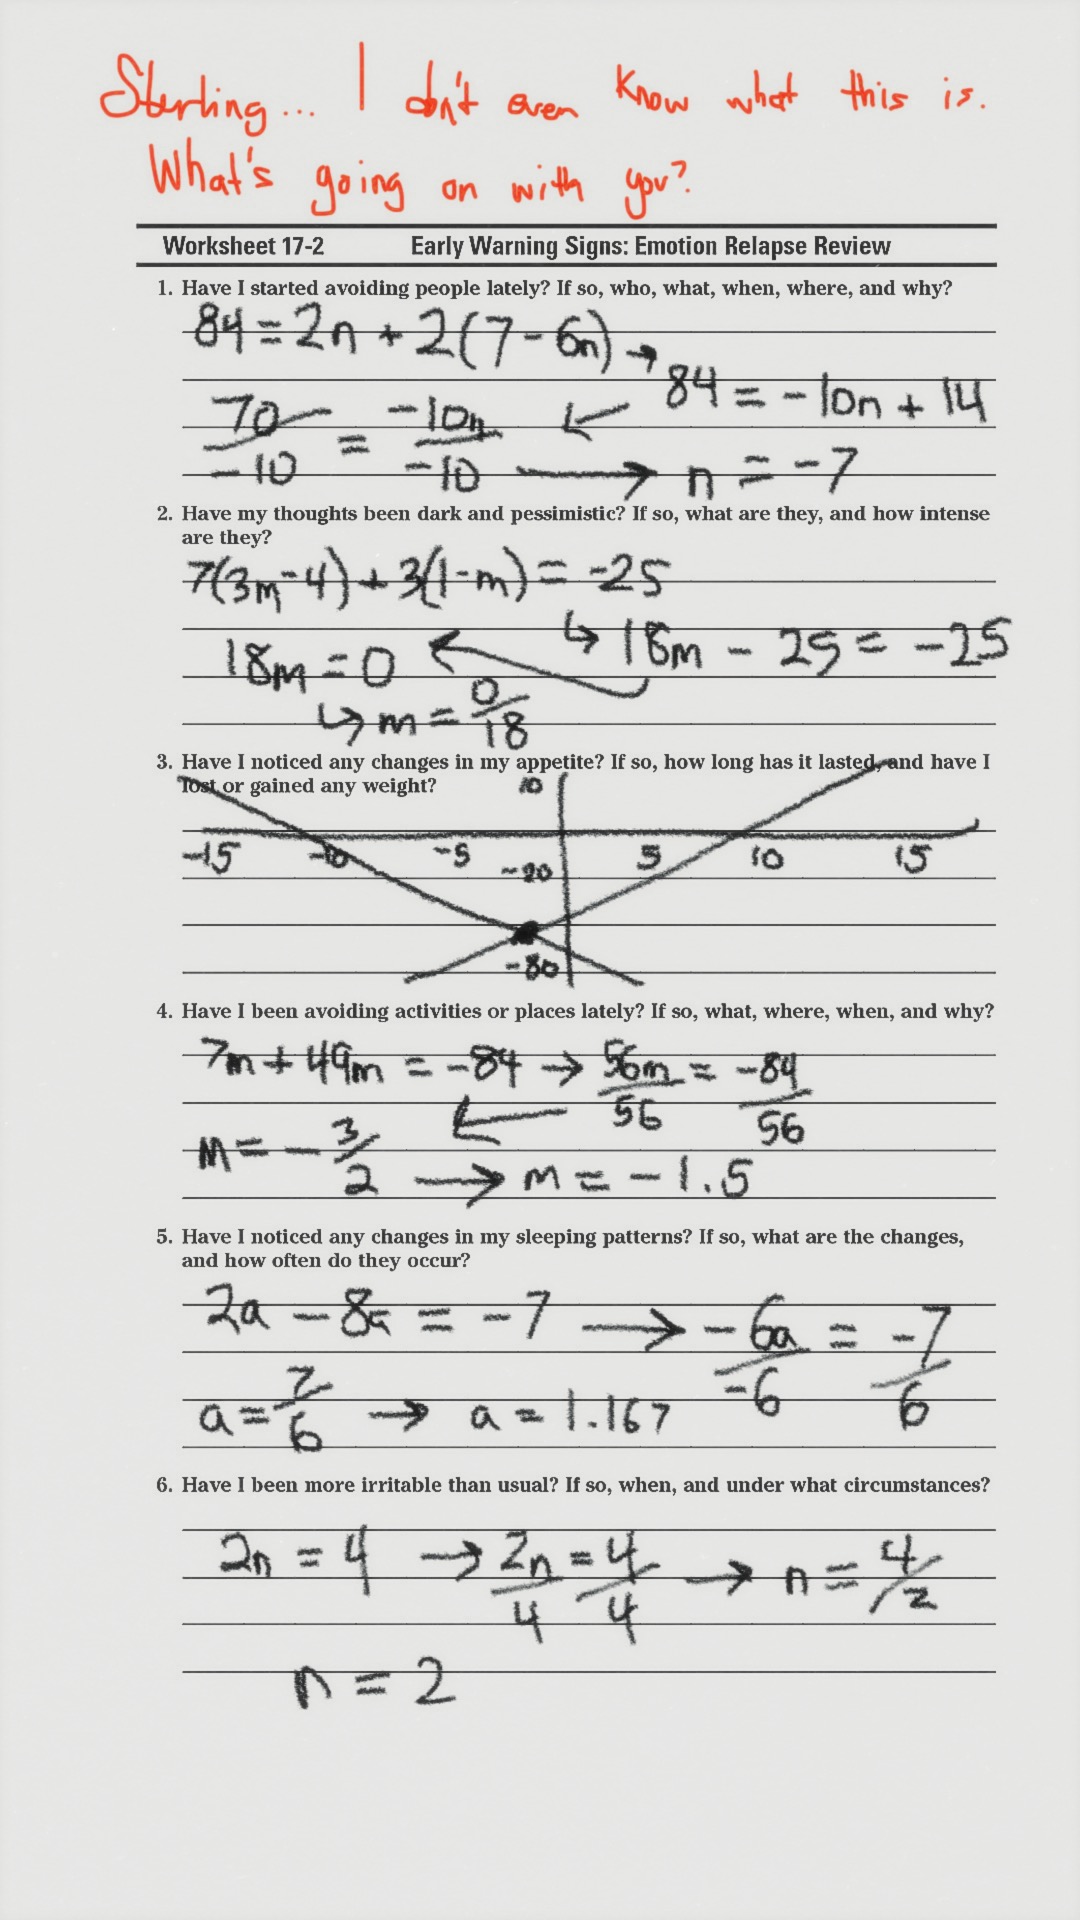 Sterling... I don't even know what this is.
What's going on with you?
Worksheet 17-2 Early Warning Signs: Emotion Relapse Review
1. Have I started avoiding people lately? If so, who, what, when, where, and why?
84 = 2n + 2(7 - 6n) →
84 = -10n + 14
70/-10 = -10n/-10 → n = -7
2. Have my thoughts been dark and pessimistic? If so, what are they, and how intense
are they?
7(3m-4) + 3(1-m) = -25
↳ 18m - 25 = -25
18m = 0
↳ m = 0/18
3. Have I noticed any changes in my appetite? If so, how long has it lasted, and have I
lost or gained any weight?
10
-15 -10 -5 5 10 15
-20
-80
4. Have I been avoiding activities or places lately? If so, what, where, when, and why?
7m + 49m = -84 → 56m/56 = -84/56
m = -3/2 → m = -1.5
5. Have I noticed any changes in my sleeping patterns? If so, what are the changes,
and how often do they occur?
2a - 8a = -7 → -6a/-6 = -7/6
a = 7/6 → a = 1.167
6. Have I been more irritable than usual? If so, when, and under what circumstances?
2n = 4 → 2n/4 = 4/4 → n = 4/2
n = 2